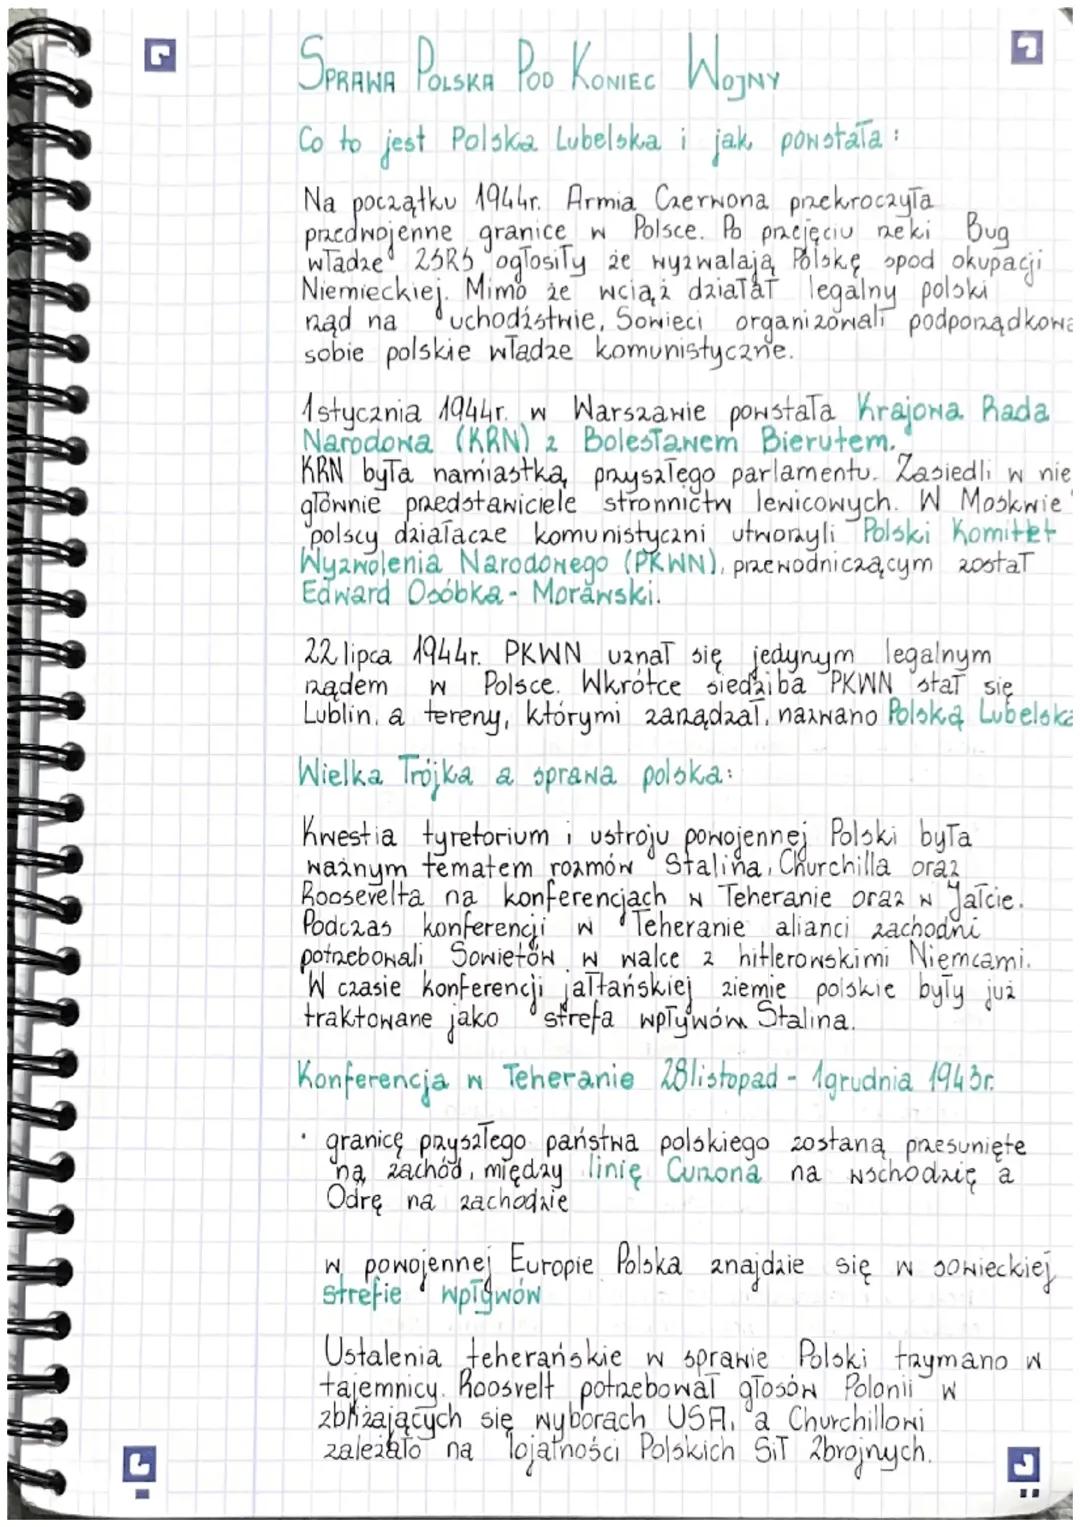 SPRAWA POLSKA POD KONIEC WOJNY
Co to jest Polska Lubelska i jak powstała:
Na początku 1944r. Armia Czerwona przekroczyła
przedwojenne granice w Polsce. Po przejęciu rzeki Bug
władze ZSRS ogłosiły że wyzwalają Polskę spod okupacji
Niemieckiej. Mimo że wciąż działał legalny polski
rząd na uchodźstwie, Sowieci organizowali podporządkowa
sobie polskie władze komunistyczne.
1 stycznia 1944r. w Warszawie powstała Krajowa Rada
Narodowa (KRN) z Bolesławem Bierutem.
KRN była namiastką przyszłego parlamentu. Zasiedli w nie
głównie przedstawiciele stronnictw lewicowych. W Moskwie
polscy działacze komunistyczni utworzyli Polski Komitet
Wyzwolenia Narodowego (PKWN), przewodniczącym został
Edward Osóbka-Morawski.
22 lipca 1944r. PKWN uznał się jedynym legalnym
rządem w Polsce. Wkrótce siedziba PKWN stał się
Lublin, a tereny, którymi zarządzał, nazwano Polską Lubelską
Wielka Trójka a sprawa polska:
Kwestia tyretorium i ustroju powojennej Polski była
ważnym tematem rozmów Stalina, Churchilla oraz
Roosevelta na konferencjach w Teheranie oraz w Jałcie.
Podczas konferencji w Teheranie alianci zachodni
potrzebowali Sowietów w walce z hitlerowskimi Niemcami.
W czasie konferencji jałtańskiej ziemie polskie były już
traktowane jako strefa wpływów Stalina.
Konferencja w Teheranie 28listopad - 1grudnia 1943r.
· granicę przyszłego państwa polskiego zostaną przesunięte
na zachód, między linię Curzona na wschodzię a
Odrę na zachodzie
w powojennej Europie Polska znajdzie się w sowieckiej
strefie wpływów
Ustalenia teherańskie w sprawie Polski trzymano w
tajemnicy. Roosvelt potrzebował głosów Polonii w
zbliżających się wyborach USA, a Churchillowi
zależało na lojalności Polskich Sił Zbrojnych.